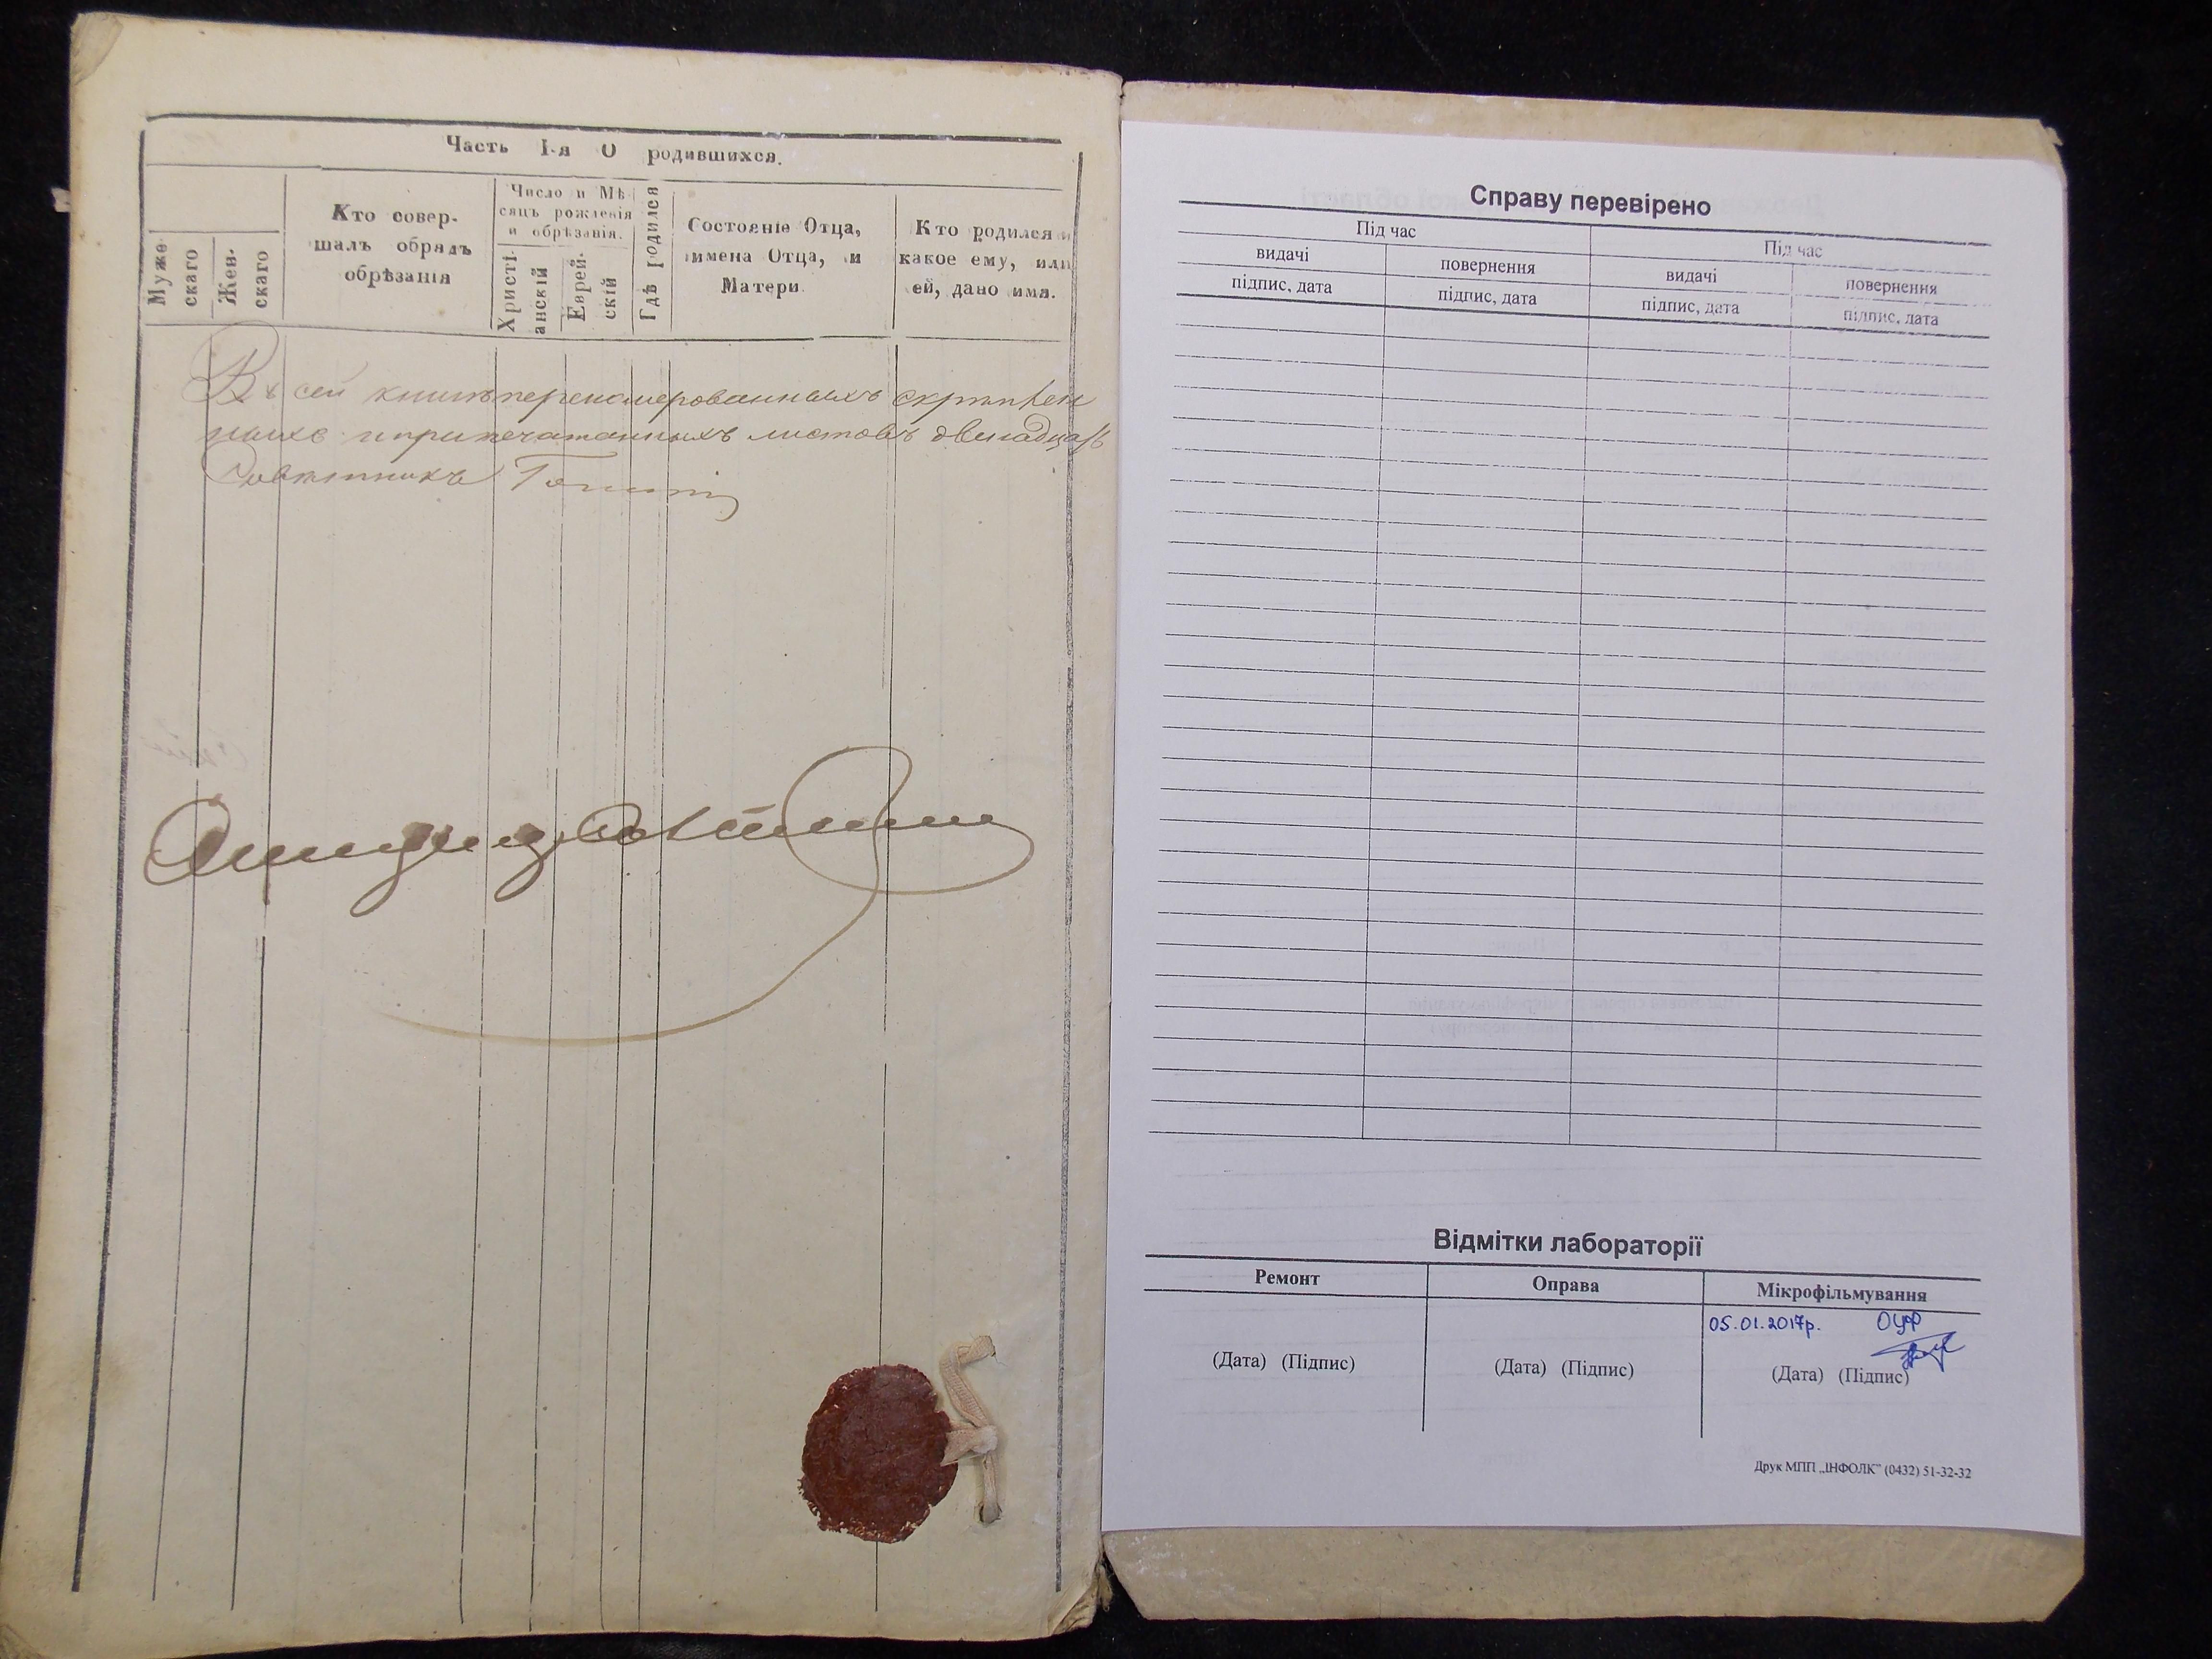 Часть I-я О родившихся.
Муже-
скаго
Жен-
скаго
Кто совер-
шалъ обрядъ
обрѣзанія
Число и Мѣ-
сяцъ рожденія
и обрѣзанія.
Христі-
анскій
Еврей-
скій
Гдѣ родился
Состояніе Отца,
имена Отца, и
Матери.
Кто родился и
какое ему, или
ей, дано имя.
Въ сей книгѣ перенумерованныхъ скрѣплен
ныхъ и припечатанныхъ листовъ двенадцать
Совѣтникъ
Справу перевірено
Під час
Під час
видачі
повернення
видачі
повернення
підпис, дата
підпис, дата
підпис, дата
підпис, дата
Відмітки лабораторії
Ремонт
Оправа
Мікрофільмування
05.01.2017р. ОЦФ
(Дата) (Підпис)
(Дата) (Підпис)
(Дата) (Підпис)
Друк МПП „ІНФОЛК" (0432) 51-32-32